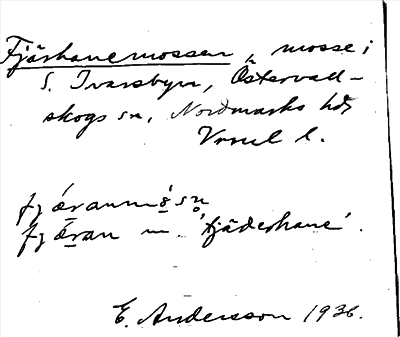 Fjärhanemossen, mosse i
S. Ivarsbyn, Östervall-
skogs sn, Nordmarks hd,
Vrml l.
fjæranmåsn
fjæran m. 'fjäderhane'.
E. Andersson 1936.